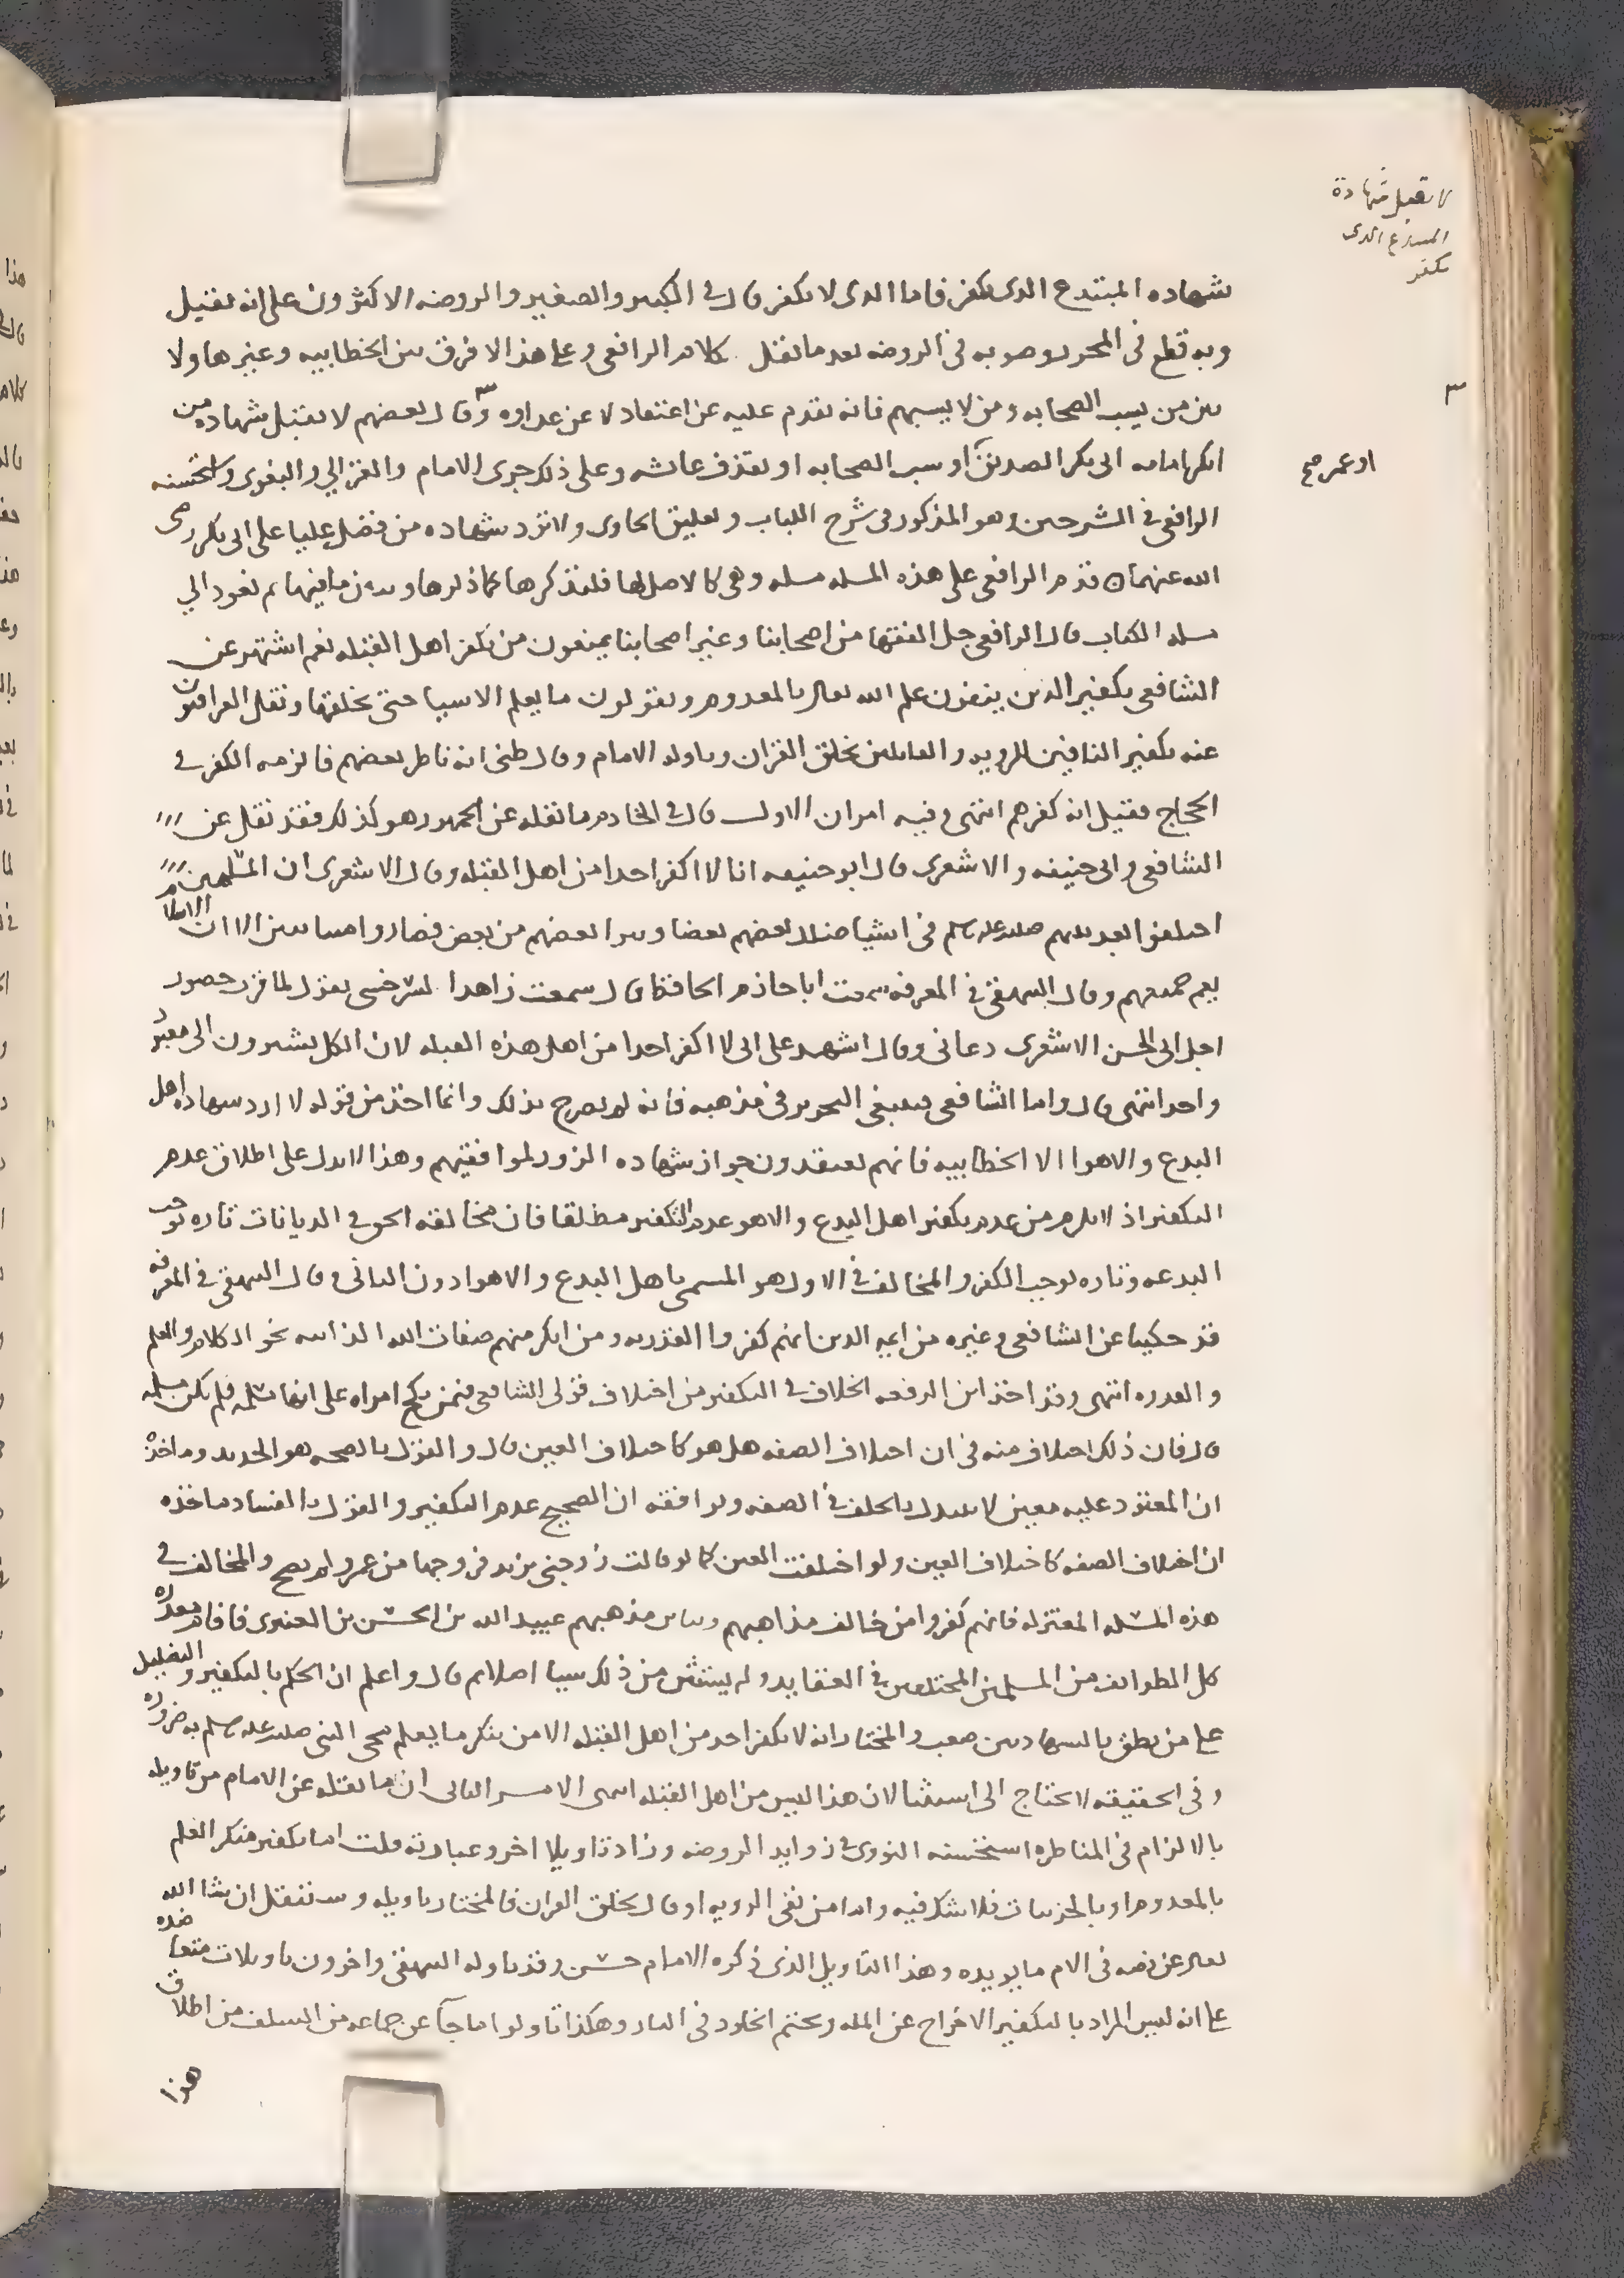 لا تقبل شهادة
المبتدع الذى
يكفر
شهاده المبتدع الذى يكفر فاما الذى لا يكفر قال فى الكبير والصغير والروضه الاكثرون على انه تقبل
وبه قطع فى المحرر وصوبه فى الروضه بعد ما نقل كلام الرافعى وعلى هذا لا فرق بين الخطابيه وغيرها ولا
بين من يسب الصحابه ومن لا يسبهم فانه يقدم عليه عن اعتقاد لا عن عداوه وقال بعضهم لا تقبل شهاده من
انكر امامه ابى بكر الصديق او سب الصحابه او يقذف عائشه وعلى ذلك جرى الامام والغزالي والبغوى واستحسنه
او عمر صح
الرافعى فى الشرحين وهو المذكور فى شرح اللباب وتعليق الحاوى ولا ترد شهاده من فضل عليا على ابى بكر رضى
الله عنهما قدم الرافعى على هذه المسله مسله وهى كالاصل لها فلنذكرها كما ذكرها ونبين ما فيها ثم نعود الي
مسله الكتاب قال الرافعى جل الفقها من اصحابنا وغير اصحابنا يمنعون من تكفر اهل القبله نعم اشتهر عن
الشافعى تكفير الذين ينفون علم الله تعالى بالمعدوم ويقولون ما يعلم الاشيا حتى يخلقها ونقل العراقيون
عنه تكفير النافين للرويه والقائلين بخلق القران وتاوله الامام وقال ظنى انه ناظر بعضهم فالزمه الكفر فى
الحجاج فقيل انه كفرهم انتهى وفيه امران الاول قال فى الخادم ما نقله عن الجمهور هو كذلك فقد نقل عن
الشافعى وابى حنيفه والاشعرى قال ابو حنيفه انا لا اكفر احدا من اهل القبله وقال الاشعرى ان المسلمين
اختلفوا بعد نبيهم صلى الله عليه وسلم فى اشيا ضلل بعضهم بعضا وتبرا بعضهم من بعض فصاروا متباينين الا ان الاسلام
يعم جميعهم وقال البيهقى فى المعرفه سمعت ابا حازم الحافظ قال سمعت زاهدا السرخسى يقول لما قرب حضور
اجل ابى الحسن الاشعرى دعانى وقال اشهد على انى لا اكفر احدا من اهل هذه القبله لان الكل يشيرون الى معبود
واحد انتهى قال واما الشافعى فينبغى التحرير فى مذهبه فانه لم يصرح بذلك وانما اخذ من قوله لا ارد شهاده اهل
البدع والاهوا الا الخطابيه فانهم يعتقدون جواز شهاده الزور لموافقيهم وهذا لا يدل على اطلاق عدم
التكفير اذ لا يلزم من عدم تكفير اهل البدع والاهو عدم التكفير مطلقا فان مخالفه الحق فى الديانات تاره توجب
البدعه وتاره توجب الكفر والمخالف فى الاول هو المسمى باهل البدع والاهوا دون الثانى وقال البيهقى فى المعرفه
قد حكينا عن الشافعى وغيره من ايمه الدين انهم كفروا القدريه ومن انكر منهم صفات الله الذاتيه نحو الكلام والعلم
والقدره انتهى وقد اخذ ابن الرفعه الخلاف فى التكفير من اختلاف قولى الشافعى فيمن نكح امراه على انها مسلمه فلم تكن مسلمه
قال فان ذلك اختلاف منه فى ان اختلاف الصفه هل هو كاختلاف العين قال والقول بالصحه هو الجديد وماخذه
ان المعقود عليه معين لا يتبدل بالخلف فى الصفه ويوافقه ان الصحيح عدم التكفير والقول بالفساد ماخذه
ان اختلاف الصفه كاختلاف العين ولو اختلفت العين كما لو قالت زوجنى بزيد فزوجها من عمرو لم يصح والمخالف فى
هذه المسله المعتزله فانهم كفروا من خالف مذاهبهم ويباين مذهبهم عبيد الله بن الحسن بن العنبرى فاقام معذره
كل الطوائف من المسلمين المختلفين فى العقايد ولم يستثن من ذلك شيا اصلا ثم قال واعلم ان الحكم بالتكفير والتضليل
على من نطق بالشهادتين صعب والمختار انه لا يكفر احد من اهل القبله الا من ينكر ما يعلم مجى النبى صلى الله عليه وسلم به ضروره
وفى الحقيقه لا يحتاج الى استثنا لان هذا ليس من اهل القبله انتهى الامر الثانى ان ما نقله عن الامام من تاويله
بالالزام فى المناظره استحسنه النووى فى زوايد الروضه وزاد تاويلا اخر وعبارته قلت اما تكفير منكر العلم
بالمعدوم او بالجزيات فلا شك فيه واما من نفى الرويه او قال بخلق القران فالمختار تاويله وسننقل ان شا الله
تعالى عن نصه فى الام ما يويده وهذا التاويل الذى ذكره الامام حسن وقد تاوله البيهقى واخرون تاويلات متعاضده
على انه ليس المراد بالتكفير الاخراج عن المله وتحتم الخلود فى النار وهكذا تاولوا ما جآ عن جماعه من السلف من اطلاق
هذا